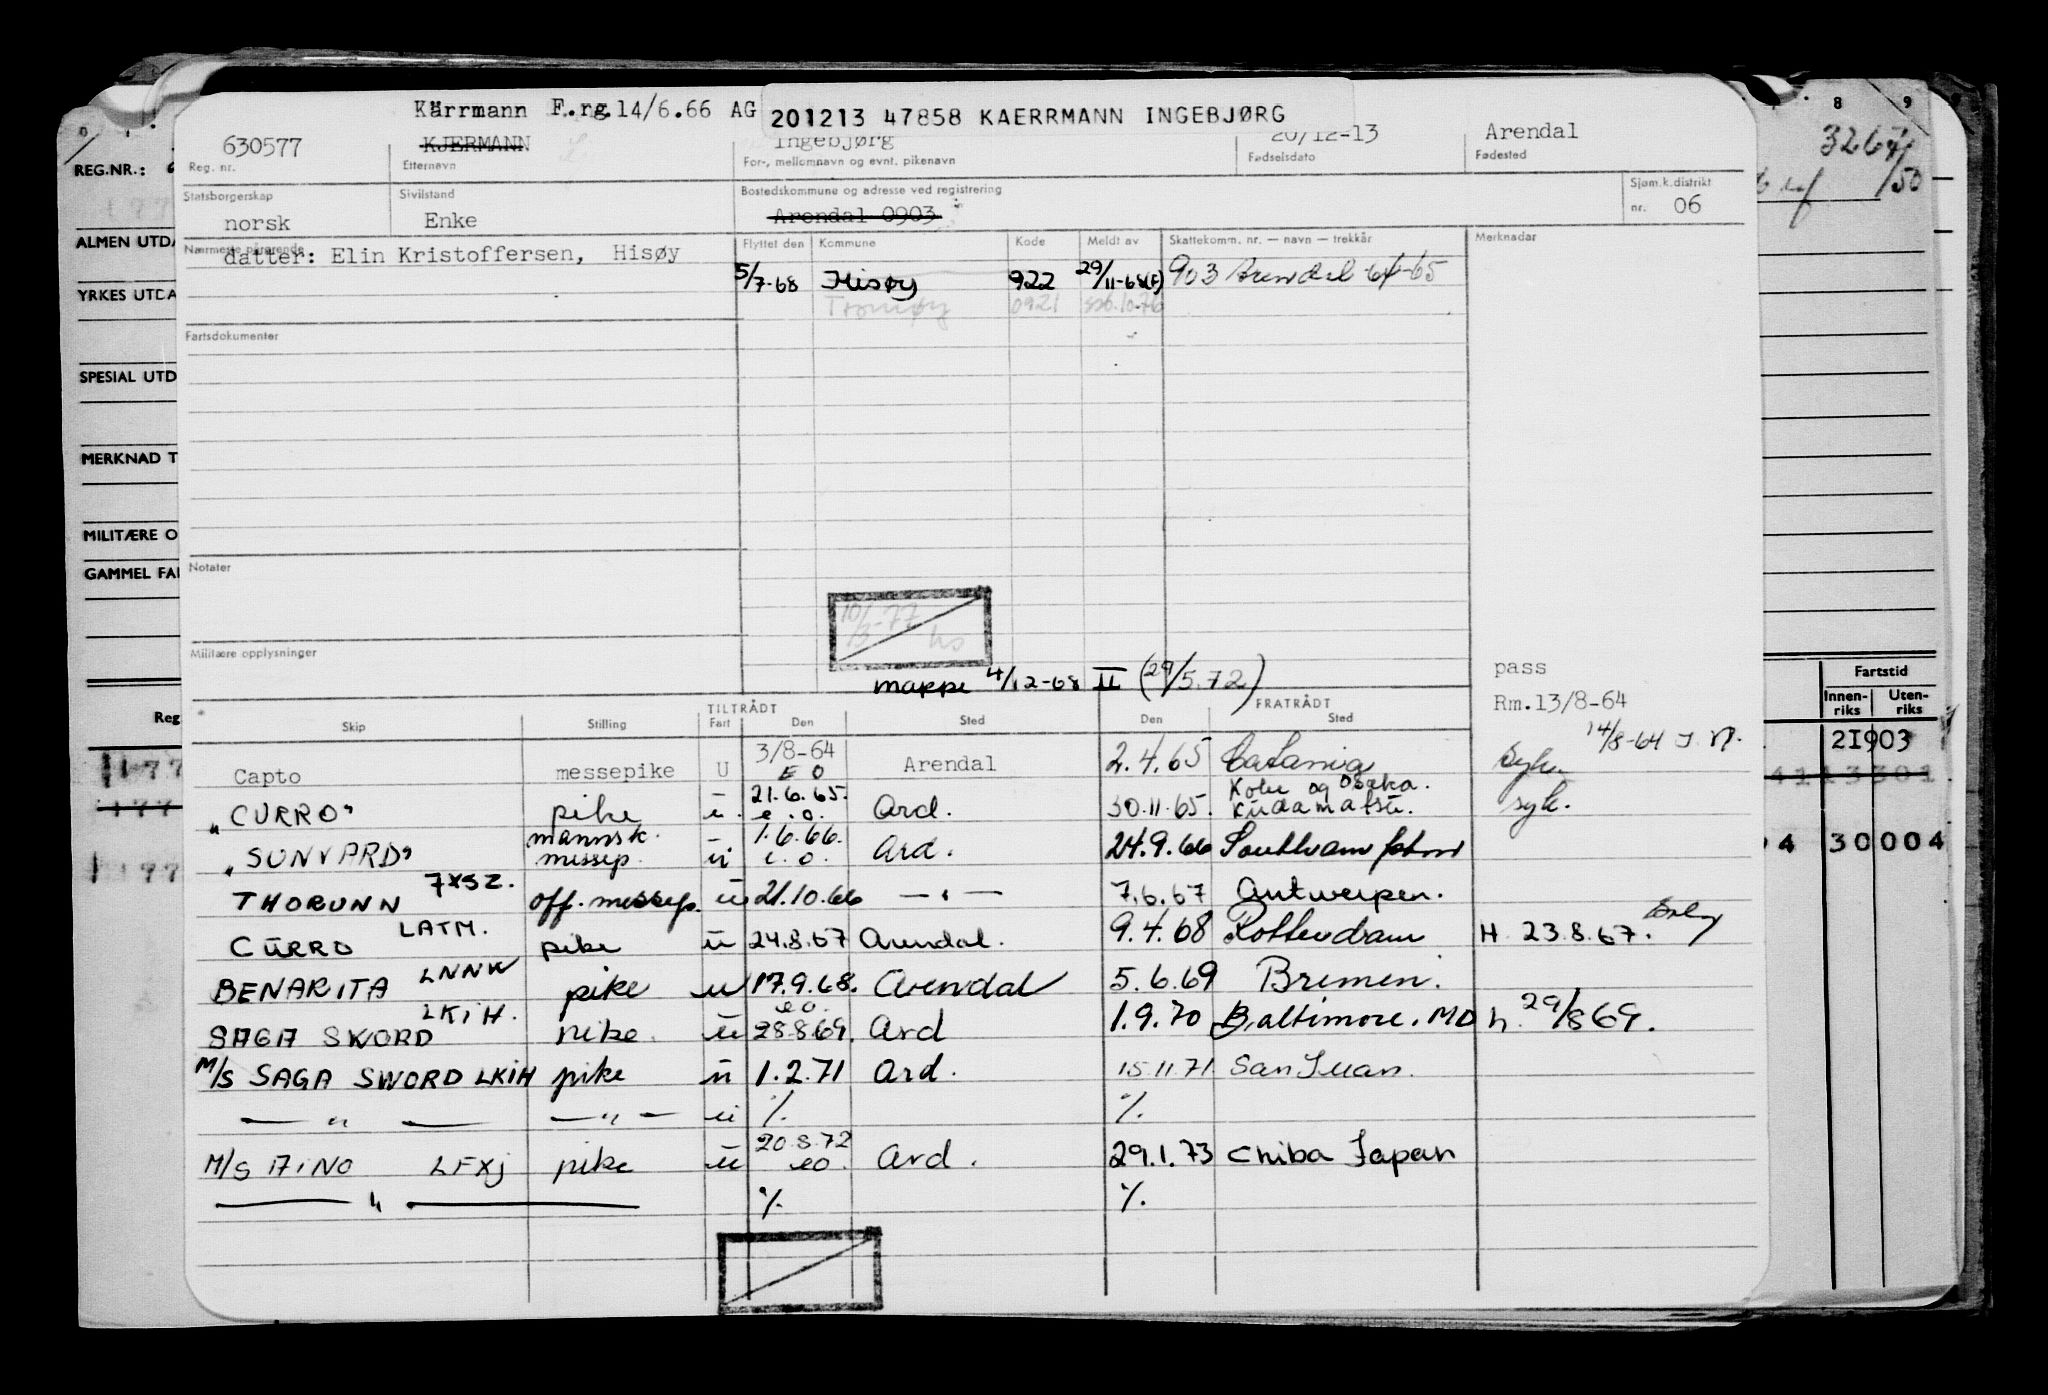 Kärrmann F.rg.14/6.66 AG 201213 47858 KAERRMANN INGEBJØRG
630577 KJERMANN Ingebjørg 20/12-13 Arendal
Reg. nr. Etternavn For-, mellomnavn og evnt. pikenavn Fødselsdato Fødested
Statsborgerskap Sivilstand Bostedskommune og adresse ved registrering Sjøm.k.distrikt
norsk Enke Arendal 0903 nr. 06
Nærmeste pårørende Flyttet den Kommune Kode Meldt av Skattekomm. nr. — navn — trekkår Merknader
datter: Elin Kristoffersen, Hisøy
5/7-68 Hisøy 922 29/11-68(F) 903 Arendal 64-65
Tromøy 0921 10.76
Fartsdokumenter
Notater
10/3-77 hs
Militære opplysninger
mappe 4/12-68 II (29/5.72)
pass
Rm.13/8-64
14/8-64
TILTRÅDT FRATRÅDT
Skip Stilling Fart Den Sted Den Sted
Capto messepike U 3/8-64 EO Arendal 2.4.65 Catania Syk.
"CURRO" pike u. 21.6.65. e.o. Ard. 30.11.65. Kobe og Osaka. Kudamatsu. syk.
"SUNVARD" mannsk. messep. ü 1.6.66. e.o. Ard. 24.9.66 Southampton
THORUNN 7XSZ. off. messep. ü 21.10.66 — " — 7.6.67 Antwerpen.
CURRO LATM. pike ü 24.8.67 Arendal. 9.4.68 Rotterdam H 23.8.67.
BENARITA LNNW pike u 17.9.68. eo. Arendal 5.6.69 Bremen.
SAGA SWORD LKIH. pike. ü 28.8.69. Ard 1.9.70 Baltimore. MD h. 29/8 69.
M/S SAGA SWORD LKIH pike ü 1.2.71 Ard. 15.11.71 San Juan.
— " — — " — ü %. %.
M/S AINO LFXJ pike ü 20.8.72 eo. Ard. 29.1.73 Chiba Japan
— " — %. %.
REG.NR.:
ALMEN UTDA
YRKES UTDA
SPESIAL UTD
MERKNAD T
MILITÆRE O
GAMMEL FAR
Reg
177
177
177
8 9
3267/50
Fartstid
Innen-riks Uten-riks
21903
41 13301
94 30004